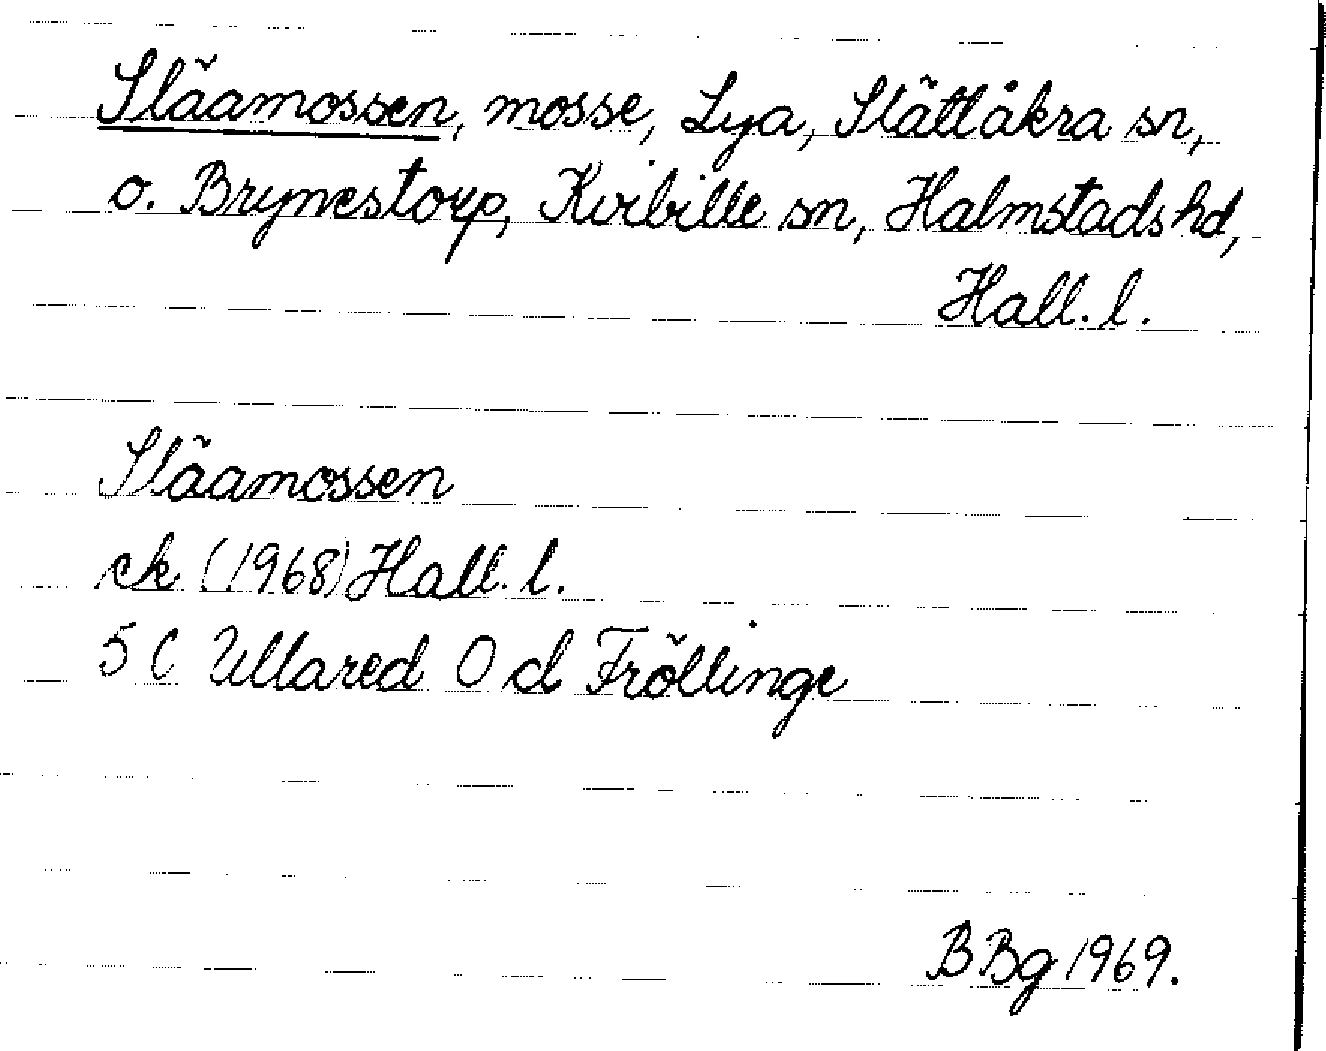 Släamossen, mosse, Lya, Slättåkra sn,
o. Brynestorp, Kvibille sn, Halmstads hd,
Hall. l.
Släamossen
ek (1968) Hall. l.
5 C Ullared 0 d Fröllinge
BBg 1969.